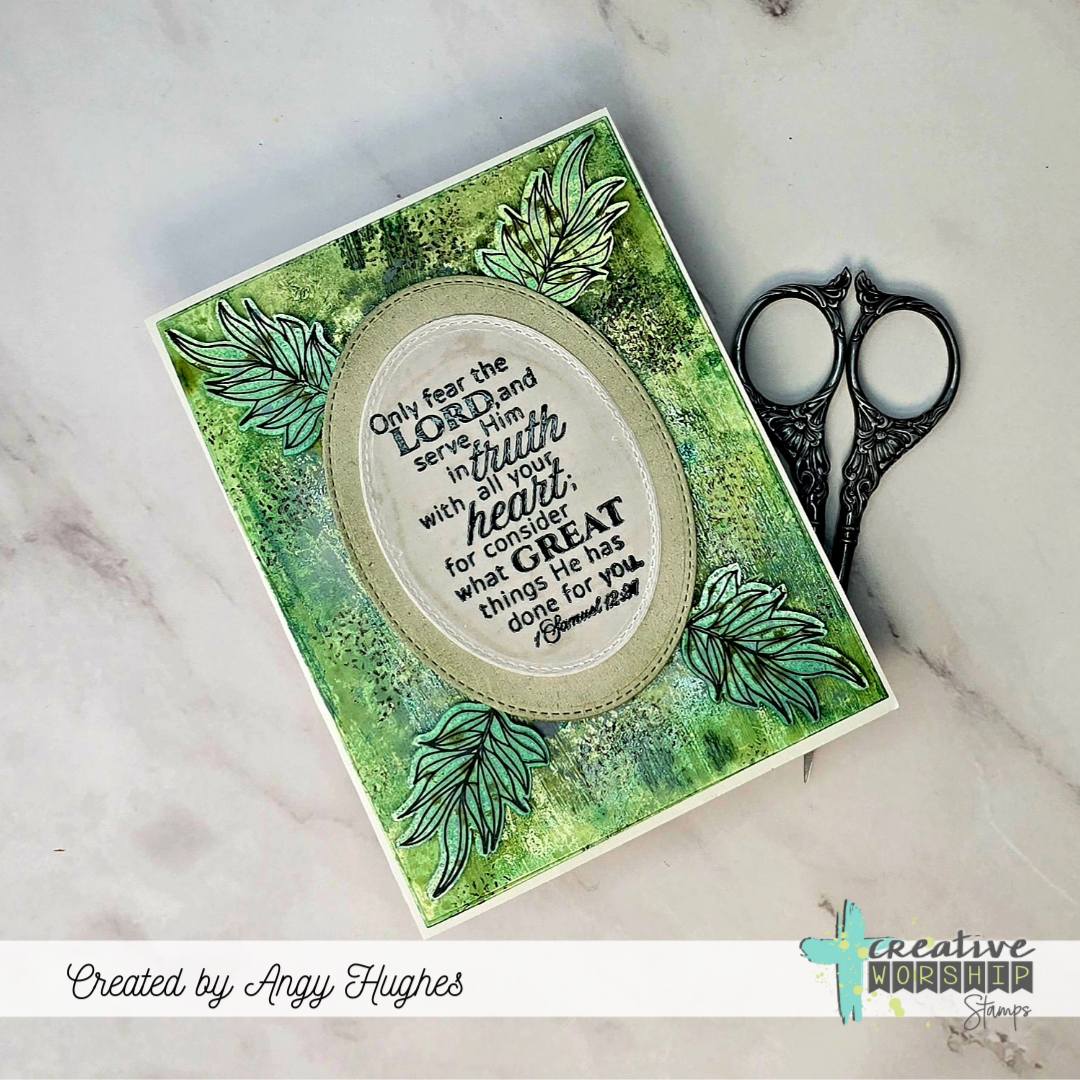 Only fear the
LORD, and
serve Him
in truth
with all your
heart;
for consider
what GREAT
things He has
done for you.
1 Samuel 12:24
Created by Angy Hughes
creative
WORSHIP
Stamps